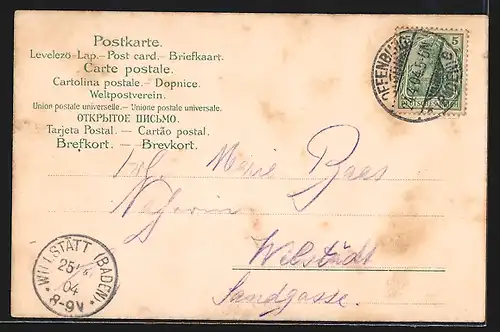 Postkarte.
Levelezö-Lap.—Post card.—Briefkaart.
Carte postale.
Cartolina postale.—Dopnice.
Weltpostverein.
Union postale universelle.—Unione postale universale.
ОТКРЫТОЕ ПИСЬМО.
Tarjeta Postal.—Cartão postal.
Brefkort.—Brevkort.
OFFENBURG
5
Marie Baes
Näherin
Wilstädt
Sandgasse.
WILLSTÄTT (BADEN)
04
8-9V